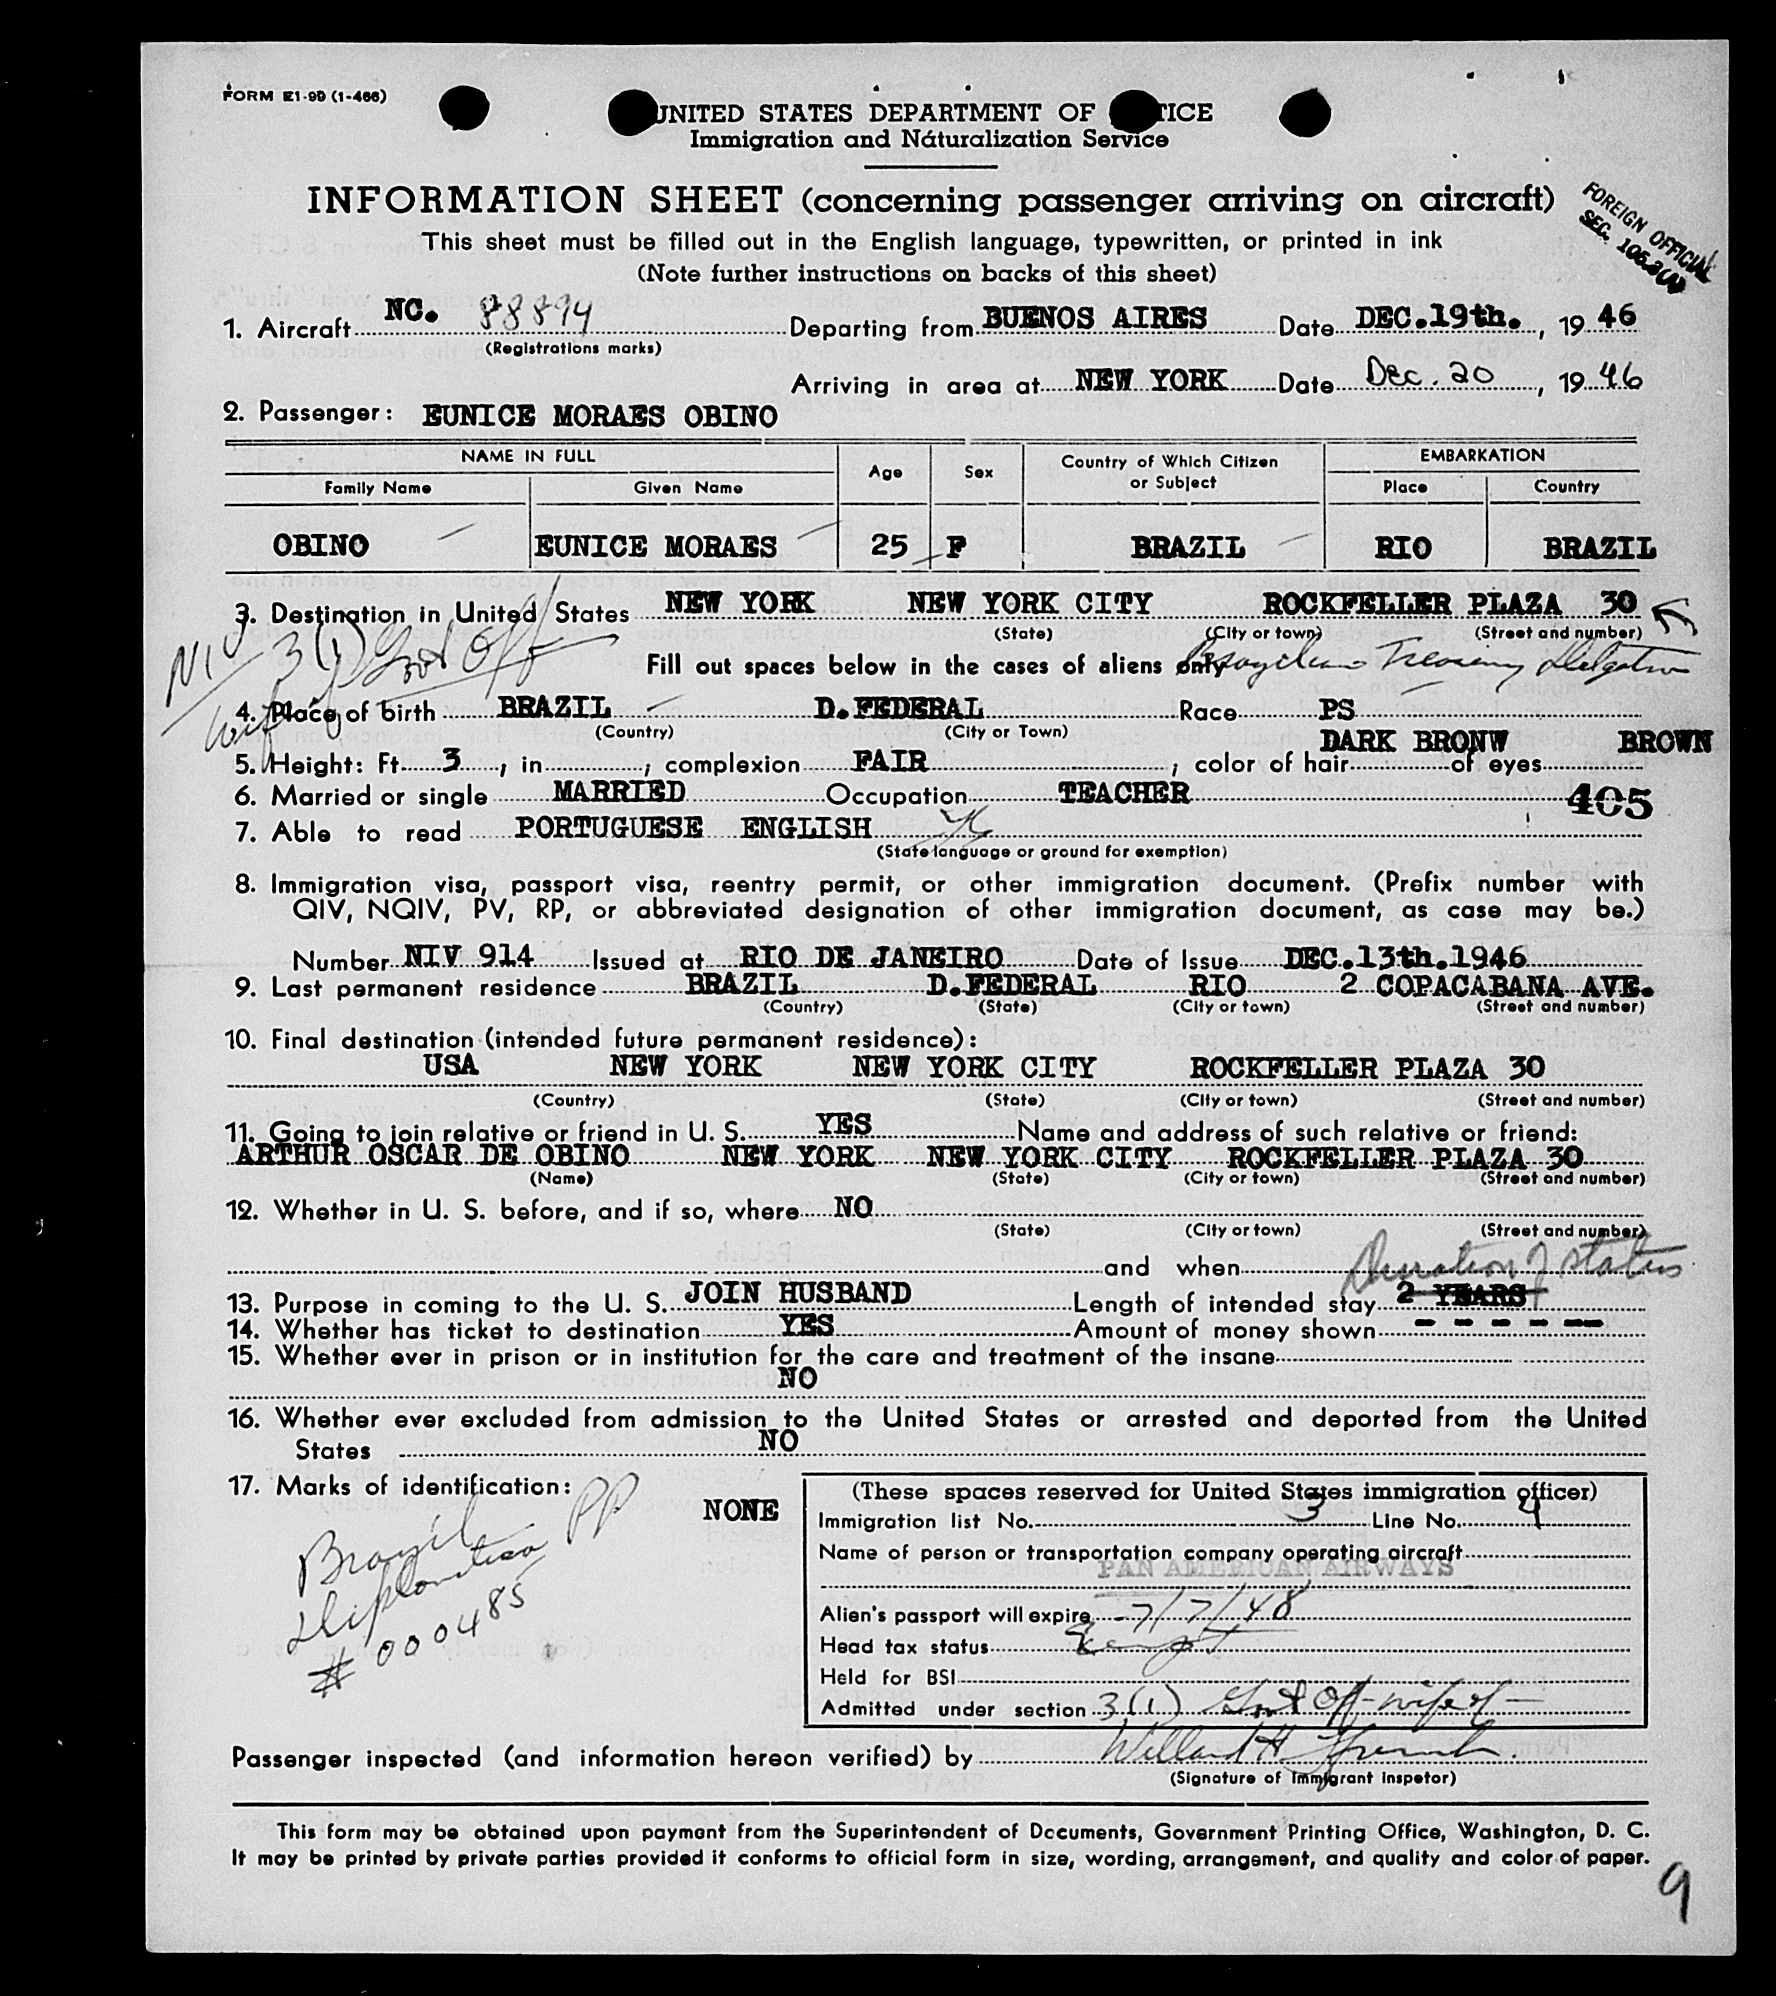 FORM E1-99 (1-466)
UNITED STATES DEPARTMENT OF TICE
Immigration and Naturalization Service
INFORMATION SHEET (concerning passenger arriving on aircraft)
FOREIGN OFFICIAL
SEC.
This sheet must be filled out in the English language, typewritten, or printed in ink
(Note further instructions on backs of this sheet)
1. Aircraft NC. 88894 Departing from BUENOS AIRES Date DEC.19th., 19 46
(Registrations marks)
Arriving in area at NEW YORK Date Dec. 20, 19 46
2. Passenger: EUNICE MORAES OBINO
NAME IN FULL Age Sex Country of Which Citizen or Subject EMBARKATION
Family Name Given Name Place Country
OBINO EUNICE MORAES 25 F BRAZIL RIO BRAZIL
3. Destination in United States NEW YORK NEW YORK CITY ROCKFELLER PLAZA 30
(State) (City or town) (Street and number)
NIV 3(1) Govt Off
wife of
Fill out spaces below in the cases of aliens only
Brazilian Treasury Delegation
4. Place of birth BRAZIL D.FEDERAL Race PS
(Country) (City or Town)
DARK BRONW BROWN
5. Height: Ft. 3, in. ; complexion FAIR ; color of hair of eyes
6. Married or single MARRIED Occupation TEACHER
405
7. Able to read PORTUGUESE ENGLISH
(State language or ground for exemption)
8. Immigration visa, passport visa, reentry permit, or other immigration document. (Prefix number with
QIV, NQIV, PV, RP, or abbreviated designation of other immigration document, as case may be.)
Number NIV 914 Issued at RIO DE JANEIRO Date of Issue DEC.13th.1946
9. Last permanent residence BRAZIL D.FEDERAL RIO 2 COPACABANA AVE.
(Country) (State) (City or town) (Street and number)
10. Final destination (intended future permanent residence):
USA NEW YORK NEW YORK CITY ROCKFELLER PLAZA 30
(Country) (State) (City or town) (Street and number)
11. Going to join relative or friend in U. S. YES Name and address of such relative or friend:
ARTHUR OSCAR DE OBINO NEW YORK NEW YORK CITY ROCKFELLER PLAZA 30
(Name) (State) (City or town) (Street and number)
12. Whether in U. S. before, and if so, where NO
(State) (City or town) (Street and number)
and when
Duration of status
13. Purpose in coming to the U. S. JOIN HUSBAND Length of intended stay 2 YEARS
14. Whether has ticket to destination YES Amount of money shown - - - - --
15. Whether ever in prison or in institution for the care and treatment of the insane
NO
16. Whether ever excluded from admission to the United States or arrested and deported from the United
States NO
17. Marks of identification: NONE
Brazil
Diplomatica PP
# 000485
(These spaces reserved for United States immigration officer)
Immigration list No. 3 Line No. 4
Name of person or transportation company operating aircraft
PAN AMERICAN AIRWAYS
Alien's passport will expire 7/7/48
Head tax status Exempt
Held for BSI
Admitted under section 3(1) Govt Off-wife of
Passenger inspected (and information hereon verified) by Willard H
(Signature of Immigrant Inspetor)
This form may be obtained upon payment from the Superintendent of Documents, Government Printing Office, Washington, D. C.
It may be printed by private parties provided it conforms to official form in size, wording, arrangement, and quality and color of paper.
9